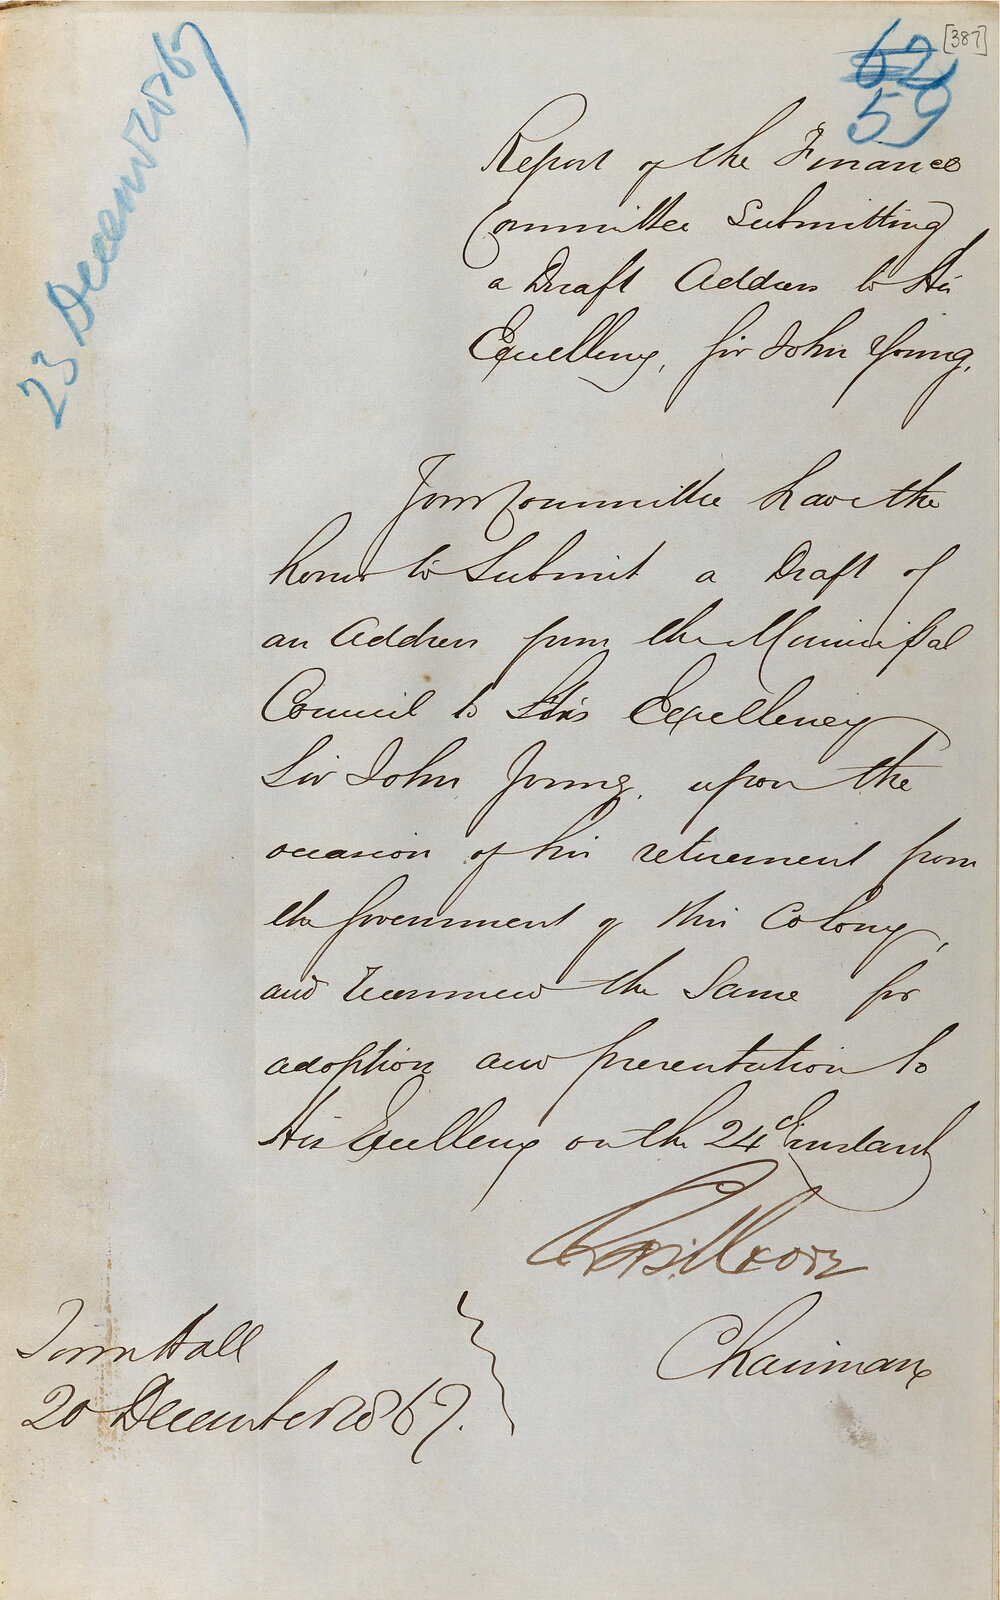 [387]
62
59
23 December 1867
Report of the Finance
Committee Submitting
a Draft Address to His
Excellency, Sir John Young.
Your Committee have the
honor to Submit a Draft of
an Address from the Municipal
Council to His Excellency
Sir John Young, upon the
occasion of his retirement from
the Government of this Colony,
and recommend the Same for
adoption and presentation to
His Excellency on the 24th instant
Chairman
Town Hall
20 December 1867.